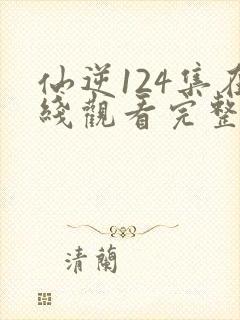 仙逆124集在
綫觀看完整
清蘭